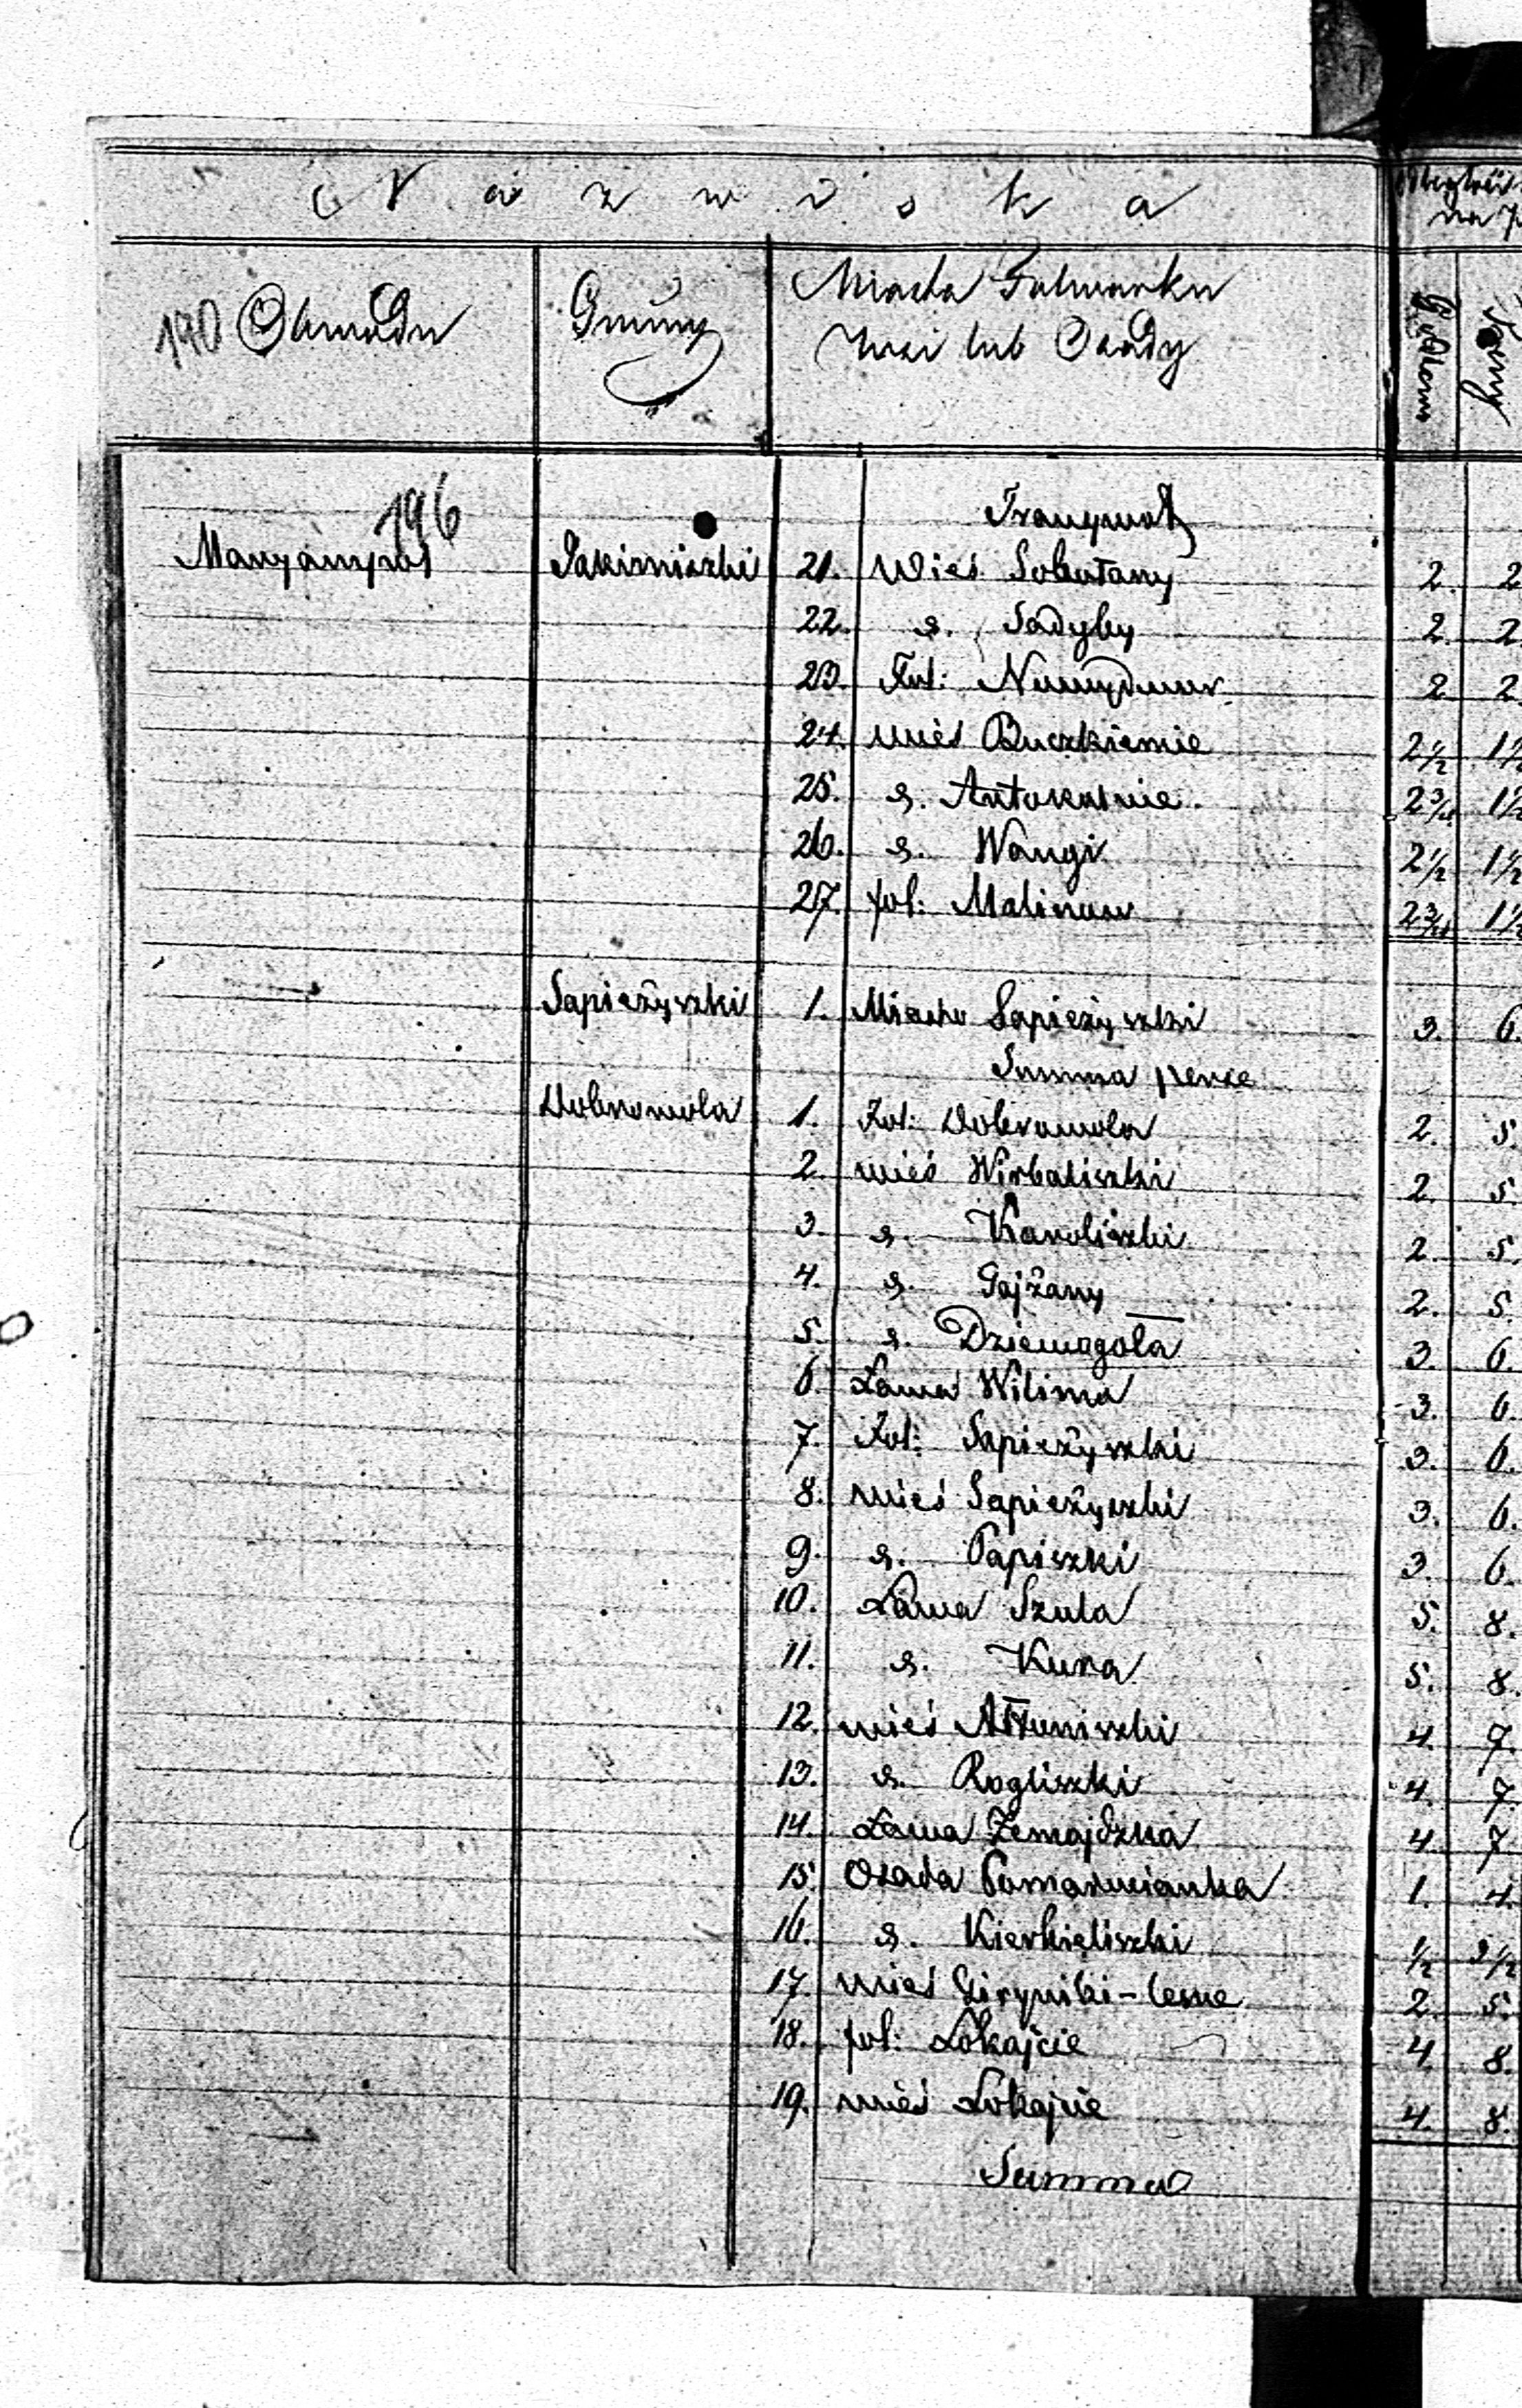 Nazwiska
Odległości
na p
190 Obwodu Gminy Miasta Folwarku
Wsi lub Osady
196
Transport
Maryampol Pakirniszki 21. Wieś Sobutany 2. 2
22. s. Sadyby 2. 2
23. Fol: Nowydwor 2 2
24. wieś Buczkiemie 2½ 1½
25. s. Antokolnie 2¾ 1½
26. s. Wangi 2½ 1½
27. fol: Malinow 2¾ 1½
Sapieżyszki 1. Miasto Sapieżyszki 3. 6.
Summa perse
Dobrowola 1. Fol: Dobrowola 2. 5.
2. wieś Wirbaliszki 2. 5
3. s. Karoliszki 2. 5.
4. s. Gajżany 2. 5.
5. s. Dziewagoła 3. 6.
6. Ława Wilima 3. 6.
7. Fol: Sapieżyszki 3. 6.
8. wieś Sapieżyszki 3. 6.
9. s. Papiszki 3. 6.
10. Ława Szula 5. 8.
11. s. Kura 5. 8.
12. wieś Altoniszki 4. 7.
13. s. Rogliszki 4. 7.
14. Ława Żemajdzka 4. 7
15. Osada Pomarwianka 1. 4.
16. s. Kierkieliszki ½ 3½
17. wieś Giryniki-leśne 2. 5.
18. fol: Łokajcie 4. 8.
19. wieś Łokajcie 4. 8.
Summa